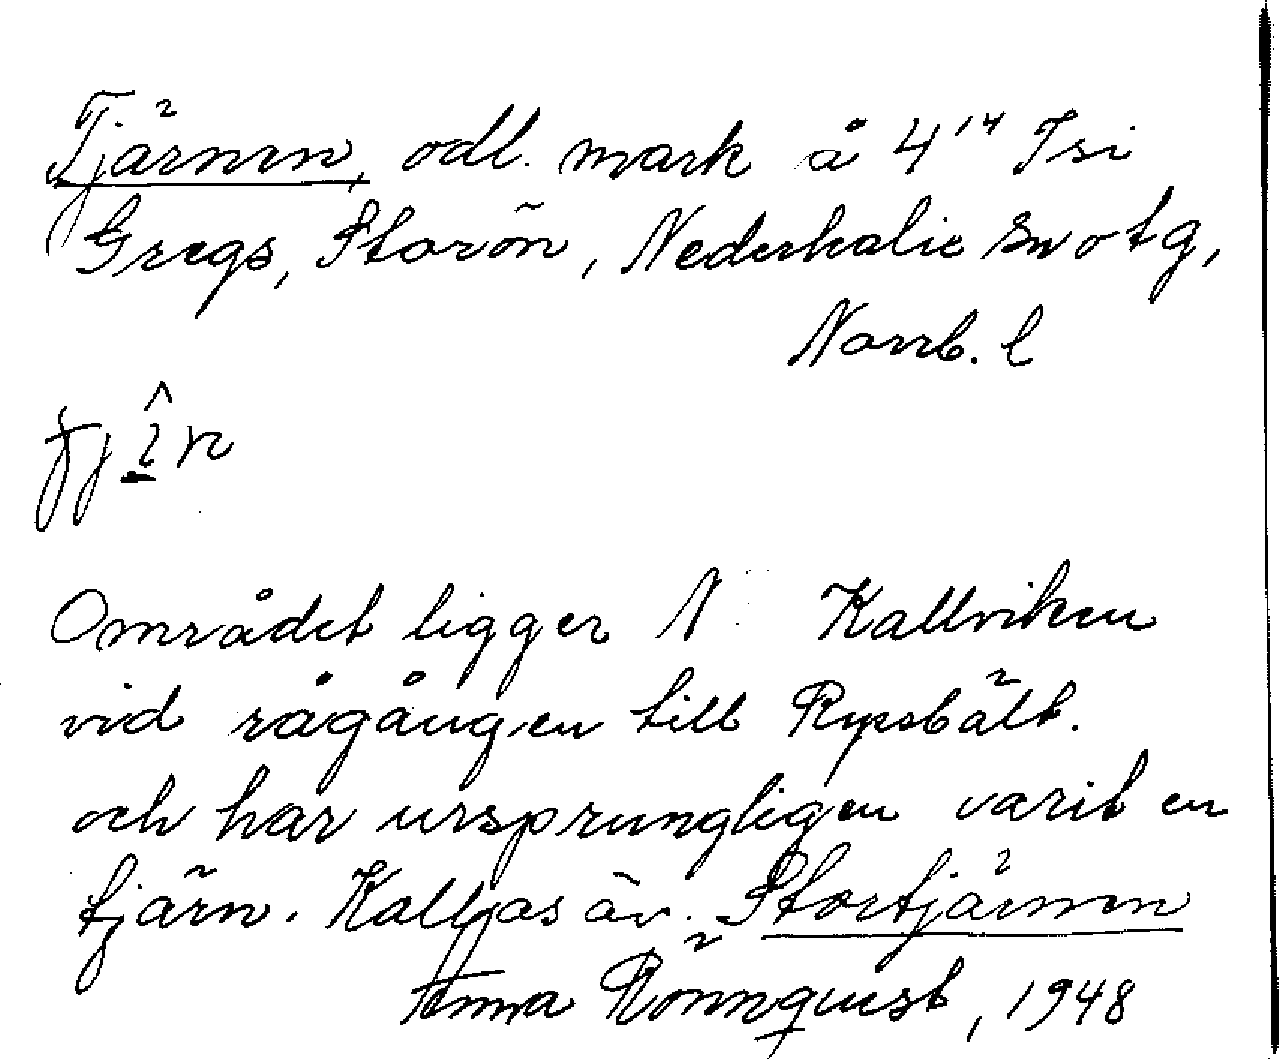 Tjärnen, odl. mark å 4¹⁴ Isi
Gregs, Storön, Nederkalix sn o tg,
Norrb. l
Området ligger N Kallviken
vid rågången till Rysbält.
och har ursprungligen varit en
tjärn. Kallas äv. Stortjärnen
Anna Rönnquist, 1948